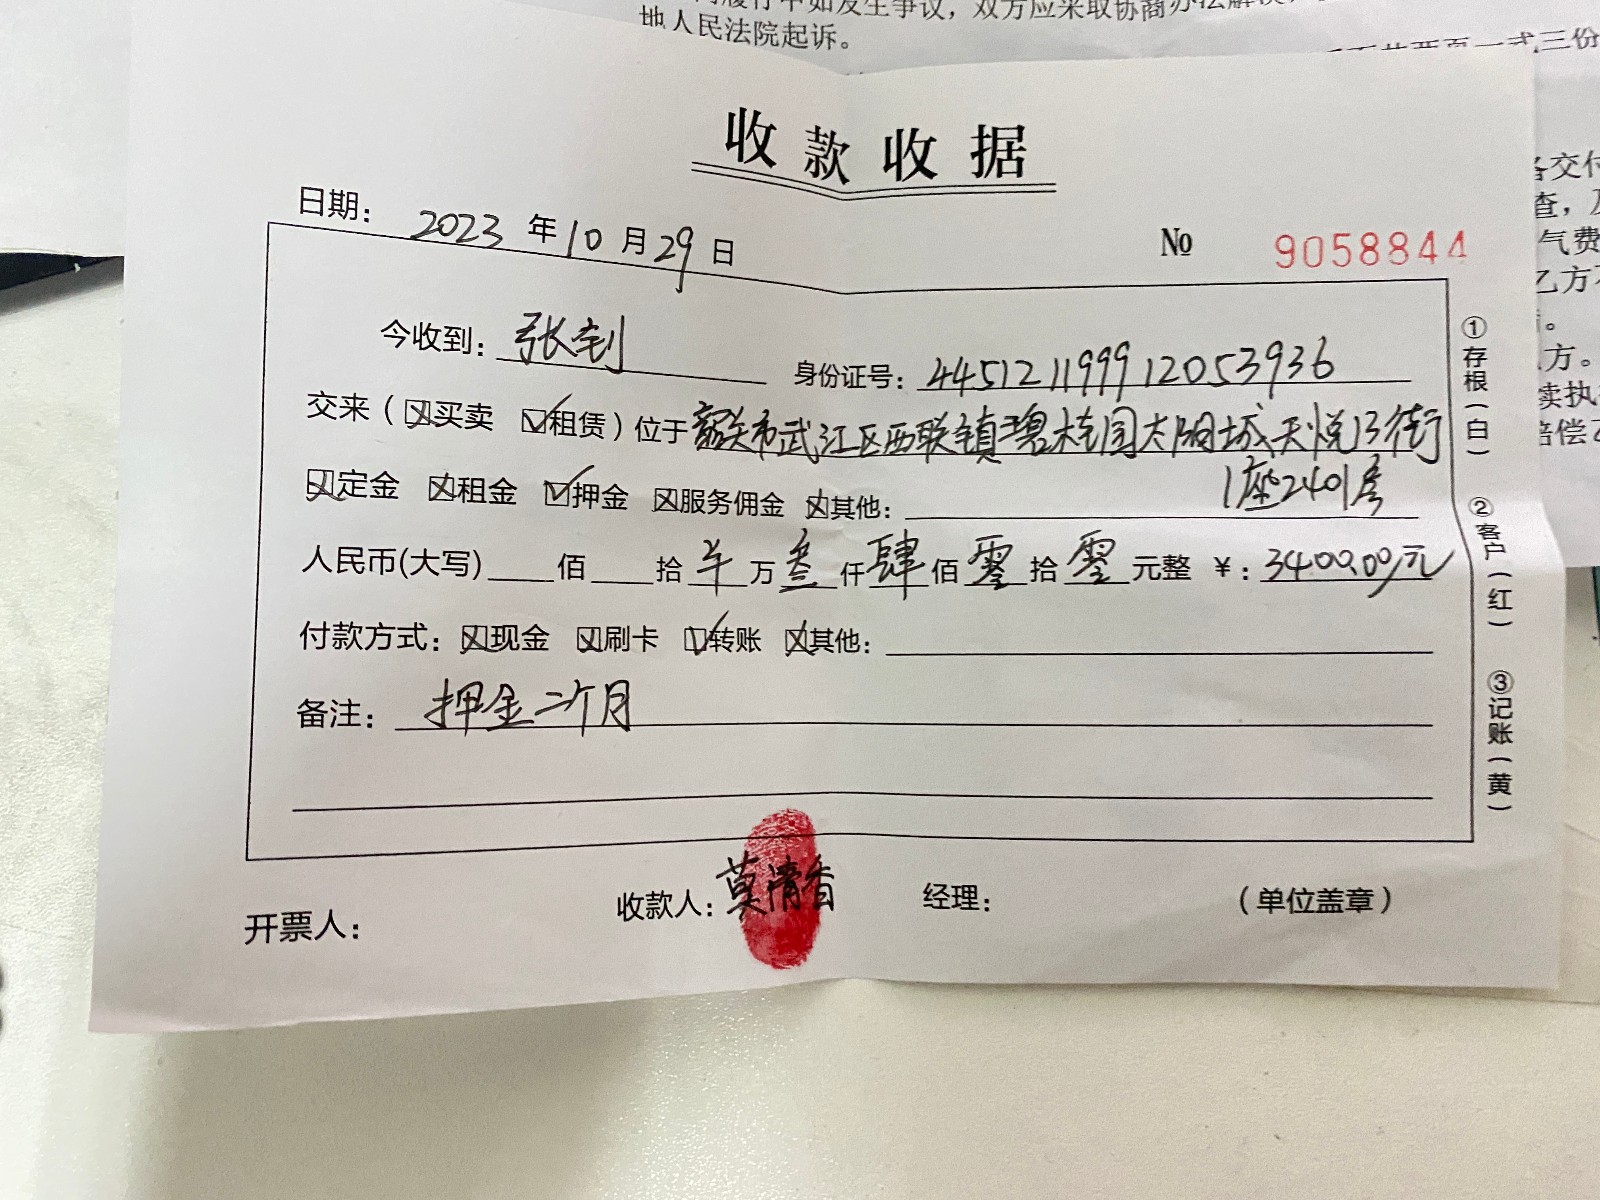 履行中如发生争议，双方应采取协商办法解决，
地人民法院起诉。
一式三份
收款收据
日期： 2023 年 10 月 29 日
No 9058844
今收到：张钊 身份证号：445121199912053936
交来（☒买卖 ☑租赁）位于韶关市武江区西联镇碧桂园太阳城天悦13街
1座2401房
☒定金 ☒租金 ☑押金 ☒服务佣金 ☒其他：
人民币(大写) 佰 拾 万 叁 仟 肆 佰 零 拾 零 元整 ￥：3400.00元
付款方式：☒现金 ☒刷卡 ☑转账 ☒其他：
备注： 押金二个月
开票人： 收款人：莫清香 经理： （单位盖章）
①存根（白） ②客户（红） ③记账（黄）
交付
查，及
气费
乙方不
。
方。
续执
赔偿乙